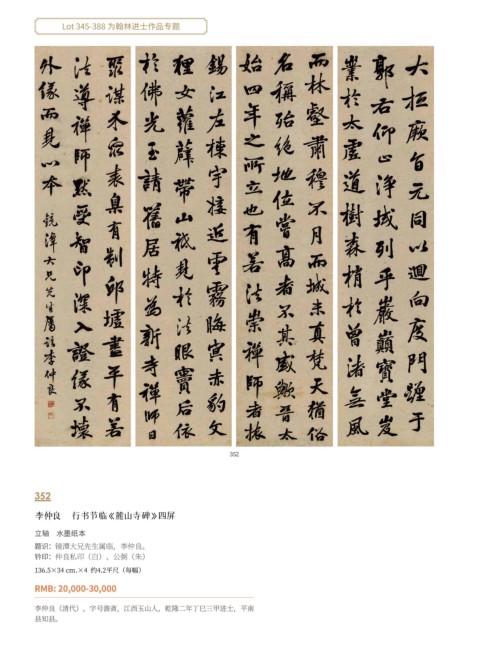 Lot 345-388 为翰林进士作品专题
大抵厥旨元同以迴向度門躔于
郭右仰止淨域列乎巖巔寶堂岌
業於太虛道樹森梢於曾渚無風
而林壑肅穆不月而城未真梵天猶俗
名稱殆絕地位嘗高者不其盛歟晉太
始四年之所立也有若法崇禪師者振
錫江左棟宇接近雲霧晦冥赤豹文
狸女蘿薜帶山祗見於法眼竇后依
於佛光至請舊居特為新寺禪師曰
聚謀不容表臬有制邱墟盡平有若
法導禪師默受智印深入證緣不壞
外緣而見心本
鏡潭大兄先生屬臨李仲良
352
352
李仲良 行书节临《麓山寺碑》四屏
立轴 水墨纸本
题识：镜潭大兄先生属临，李仲良。
钤印：仲良私印（白）、公弼（朱）
136.5×34 cm.×4 约4.2平尺（每幅）
RMB: 20,000-30,000
李仲良（清代），字号蔷斋，江西玉山人，乾隆二年丁巳三甲进士，平南
县知县。